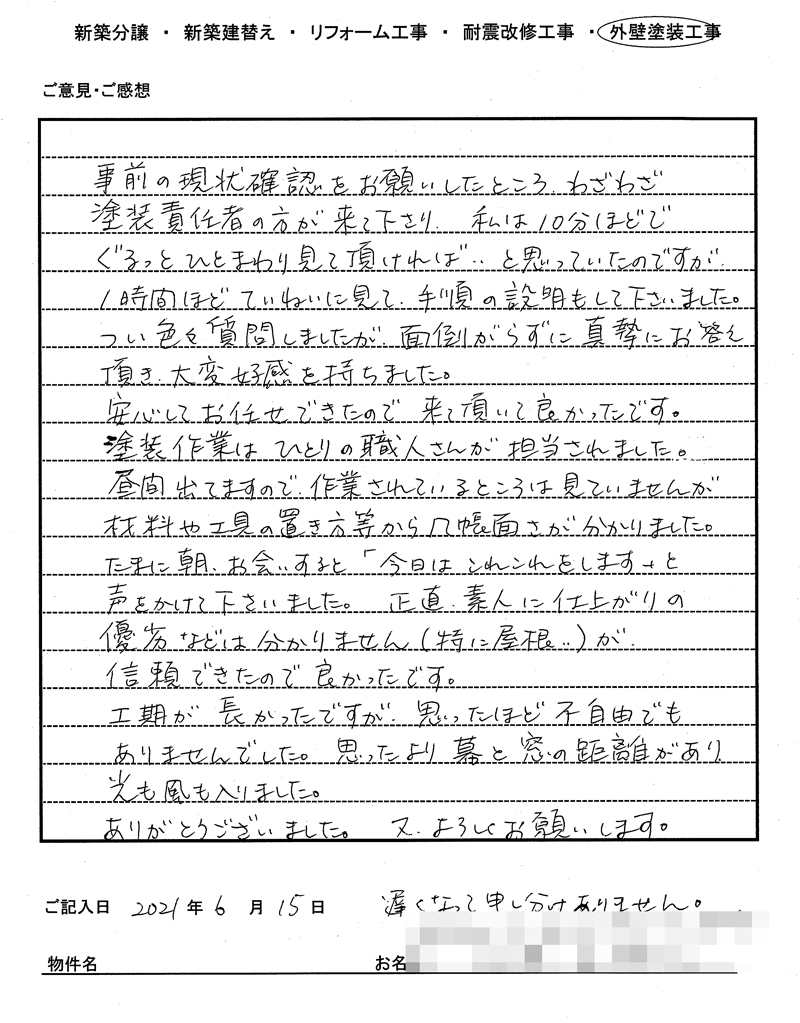 新築分譲 ・ 新築建替え ・ リフォーム工事 ・ 耐震改修工事 ・ 外壁塗装工事
ご意見・ご感想
事前の現状確認をお願いしたところ、わざわざ
塗装責任者の方が来て下さり、私は10分ほどで
ぐるっとひとまわり見て頂ければ‥と思っていたのですが、
1時間ほどていねいに見て、手順の説明もして下さいました。
つい色々質問しましたが、面倒がらずに真摯にお答え
頂き、大変好感を持ちました。
安心してお任せできたので来て頂いて良かったです。
塗装作業はひとりの職人さんが担当されました。
昼間出てますので、作業されているところは見ていませんが
材料や工具の置き方等から几帳面さが分かりました。
たまに朝、お会いすると「今日はこれこれをします」と
声をかけて下さいました。 正直、素人に仕上がりの
優劣などは分かりません(特に屋根‥)が、
信頼できたので良かったです。
工期が長かったですが、思ったほど不自由でも
ありませんでした。思ったより幕と窓の距離があり、
光も風も入りました。
ありがとうございました。 又、よろしくお願いします。
ご記入日 2021年6月15日 遅くなって申し分けありません。
物件名 お名